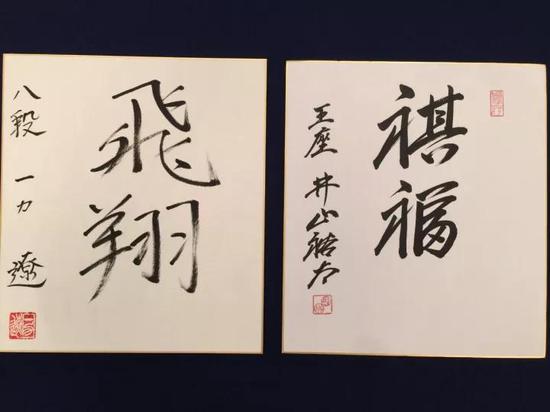 祺福
王座 井山裕太
飛翔
八段 一力遼